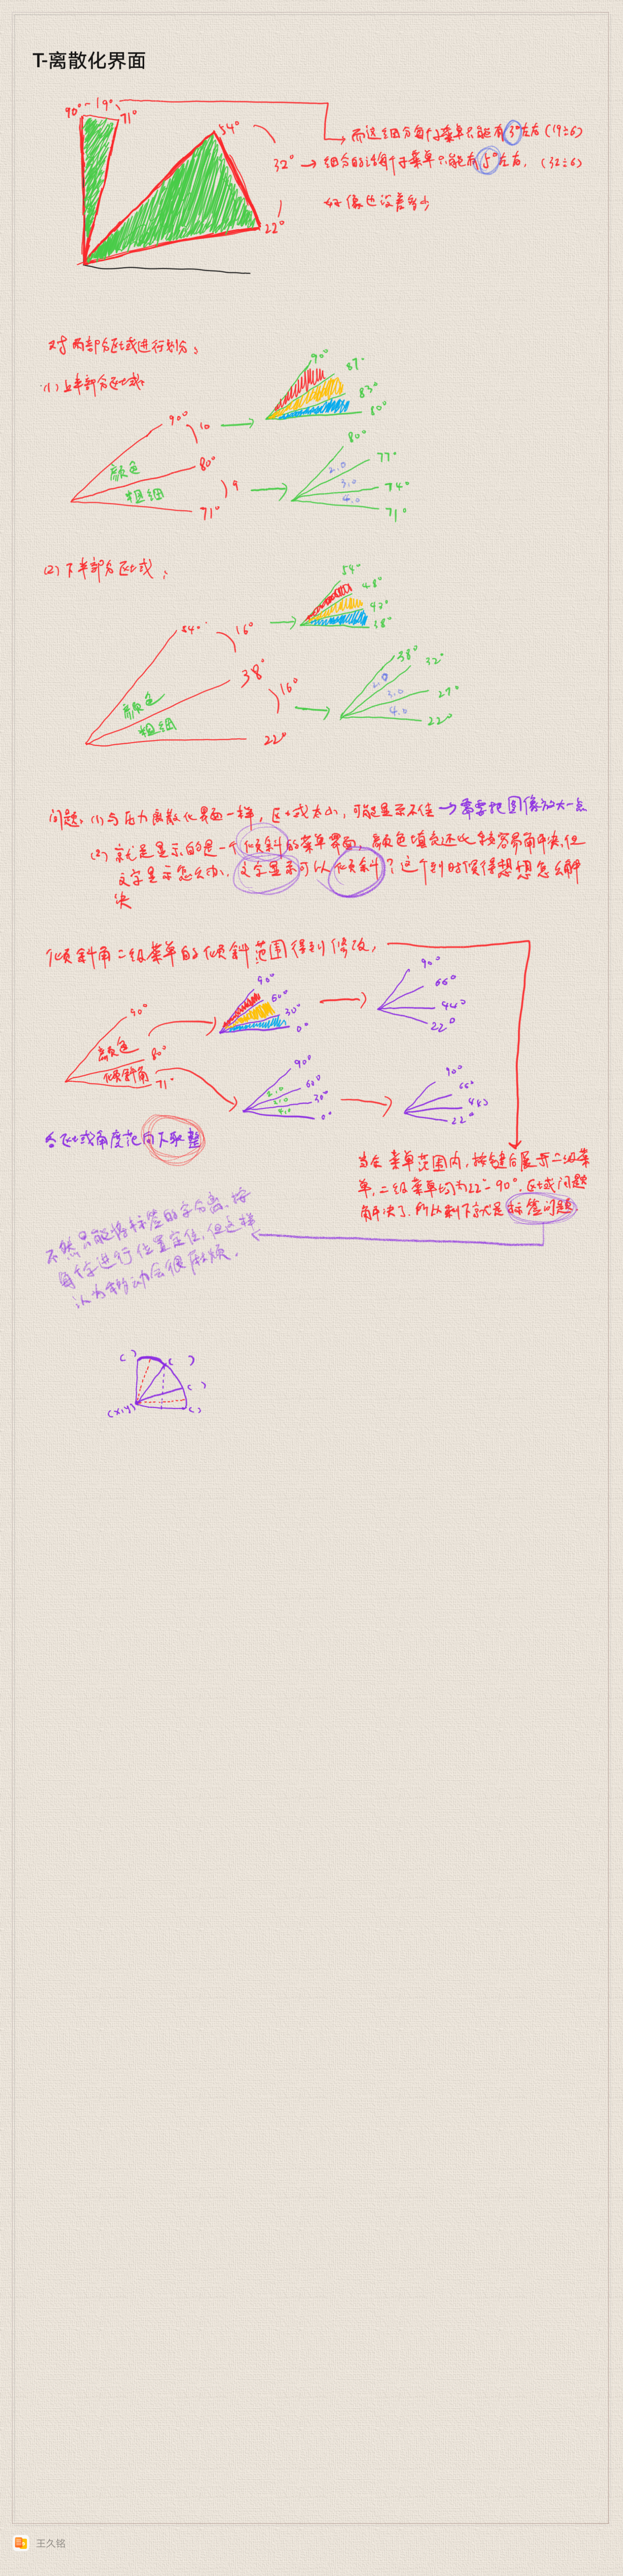 T-离散化界面
90° 19° 71°
而这细分每个子菜单只能有3°左右 (19÷6)
54°
32° → 细分的话每个子菜单只能有5°左右. (32÷6)
22°
好像也没差多少
对两部分区域进行划分:
(1) 上半部分区域:
90° 10
颜色
80°
粗细
9
71°
90°
87°
83°
80°
80°
77°
2.0
3.0
74°
4.0
71°
(2) 下半部分区域:
54°
16°
颜色
38°
粗细
16°
22°
54°
48°
42°
38°
38°
32°
2.0
3.0
27°
4.0
22°
问题: (1) 与压力离散化界面一样, 区域太小, 可能显示不佳 → 需要把图像放大一点
(2) 就是显示的是一个倾斜的菜单界面, 颜色填充还比较容易解决, 但
文字显示怎么办. 文字显示可以倾斜? 这个到时候得想想怎么解
决
倾斜角二级菜单的倾斜范围得到修改,
90°
颜色
80°
倾斜角
71°
90°
60°
30°
0°
90°
66°
44°
22°
90°
60°
2.0
30°
4.0
0°
90°
66°
44°
22°
各区域角度范向下取整
当在菜单范围内, 按键后展示二级菜
单, 二级菜单均为22°~90°. 区域问题
解决了. 所以剩下就是标签问题.
不然只能将标签的字分离, 按
每个字进行位置定位, 但这样
认为移动会很麻烦.
( )
( )
( )
(x,y)
( )
王久铭